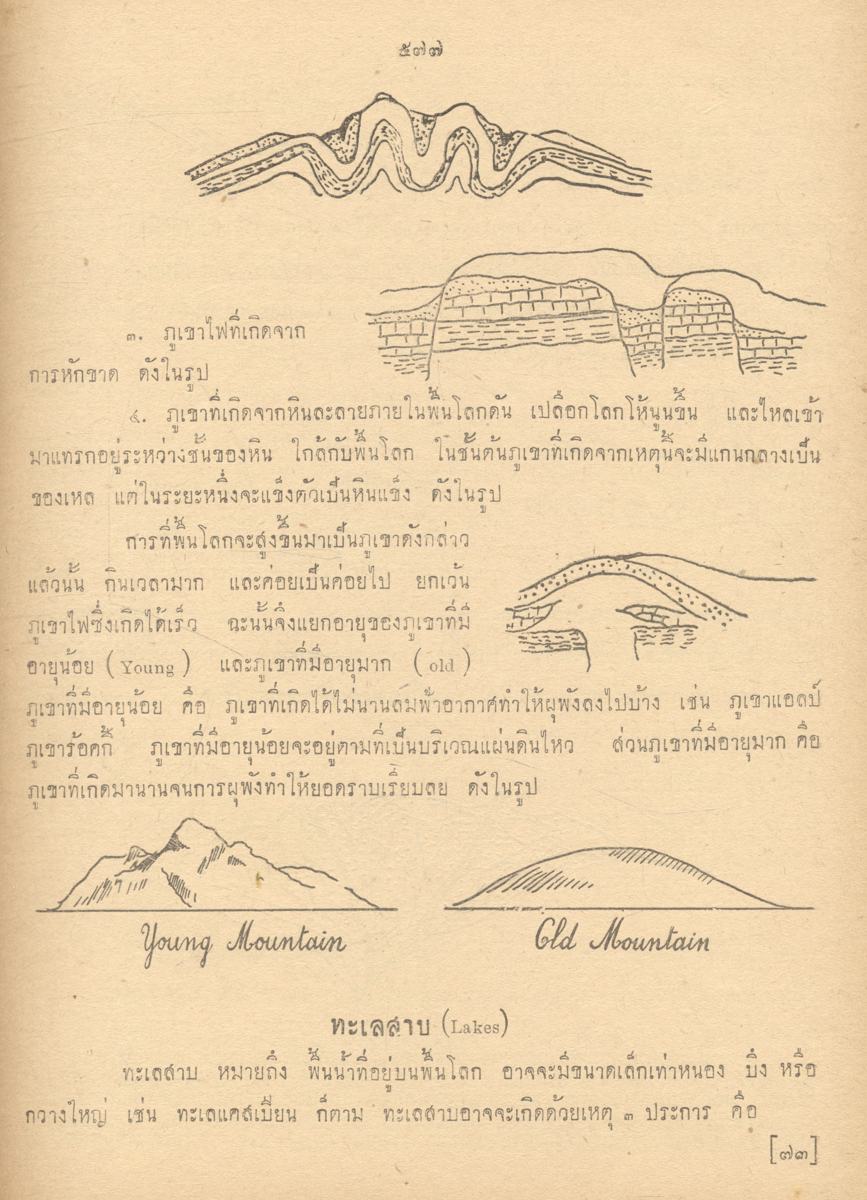 ๕๗๗
๓. ภูเขาไฟที่เกิดจาก
การหักขาด ดังในรูป
๔. ภูเขาที่เกิดจากหินละลายภายในพื้นโลกดัน เปลือกโลกให้นูนขึ้น และไหลเข้า
มาแทรกอยู่ระหว่างชั้นของหิน ใกล้กับพื้นโลก ในชั้นต้นภูเขาที่เกิดจากเหตุนี้จะมีแกนกลางเป็น
ของเหลว แต่ในระยะหนึ่งจะแข็งตัวเป็นหินแข็ง ดังในรูป
การที่พื้นโลกจะสูงขึ้นมาเป็นภูเขาดังกล่าว
แล้วนั้น กินเวลามาก และค่อยเป็นค่อยไป ยกเว้น
ภูเขาไฟซึ่งเกิดได้เร็ว ฉะนั้นจึงแยกอายุของภูเขาที่มี
อายุน้อย (Young) และภูเขาที่มีอายุมาก (old)
ภูเขาที่มีอายุน้อย คือ ภูเขาที่เกิดได้ไม่นานลมฟ้าอากาศทำให้ผุพังลงไปบ้าง เช่น ภูเขาแอลป์
ภูเขาร้อคกี้ ภูเขาที่มีอายุน้อยจะอยู่ตามที่เป็นบริเวณแผ่นดินไหว ส่วนภูเขาที่มีอายุมาก คือ
ภูเขาที่เกิดมานานจนการผุพังทำให้ยอดราบเรียบลย ดังในรูป
Young Mountain
Old Mountain
ทะเลสาบ (Lakes)
ทะเลสาบ หมายถึง พื้นน้ำที่อยู่บนพื้นโลก อาจจะมีขนาดเล็กเท่าหนอง บึง หรือ
กวางใหญ่ เช่น ทะเลแคสเปียน ก็ตาม ทะเลสาบอาจจะเกิดด้วยเหตุ ๓ ประการ คือ
[๗๓]